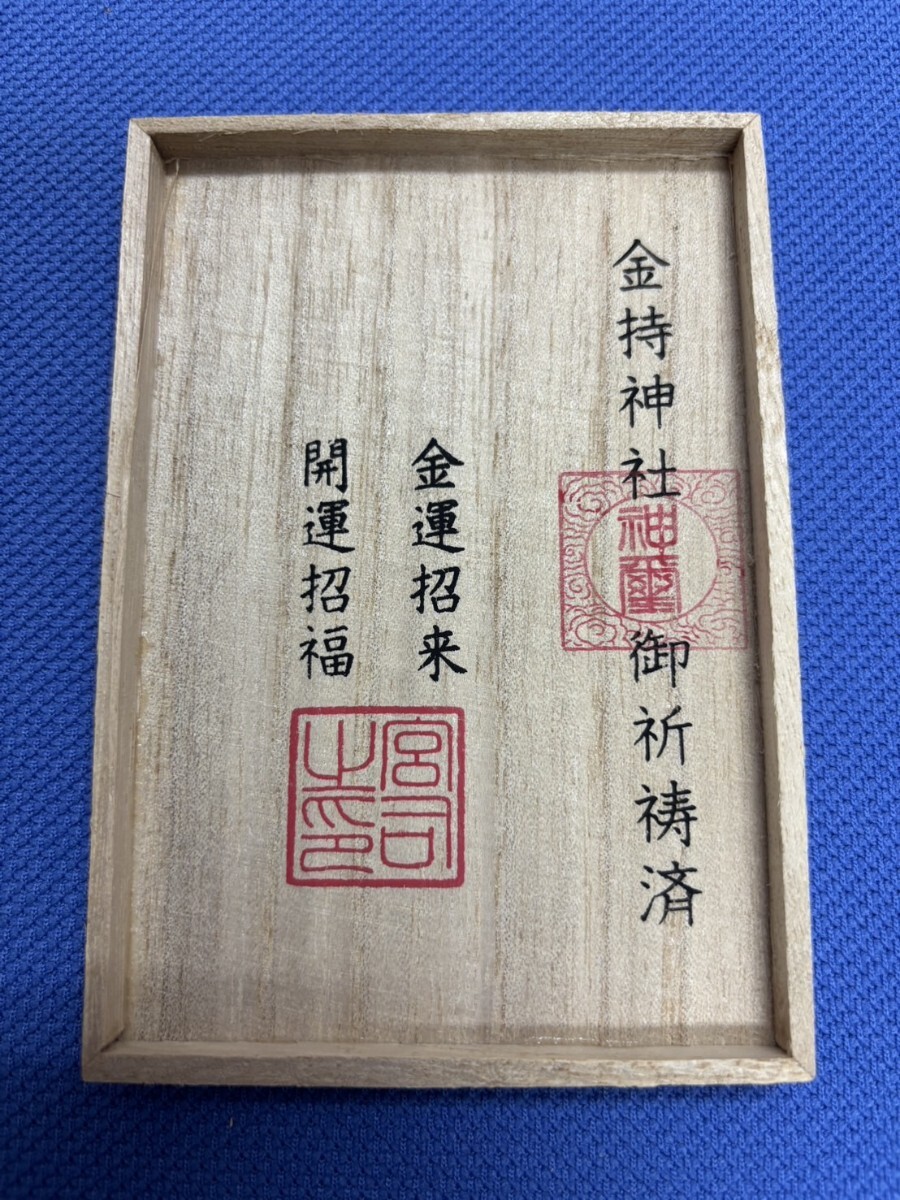 金持神社御祈祷済
神璽
金運招来
開運招福
宮司之印